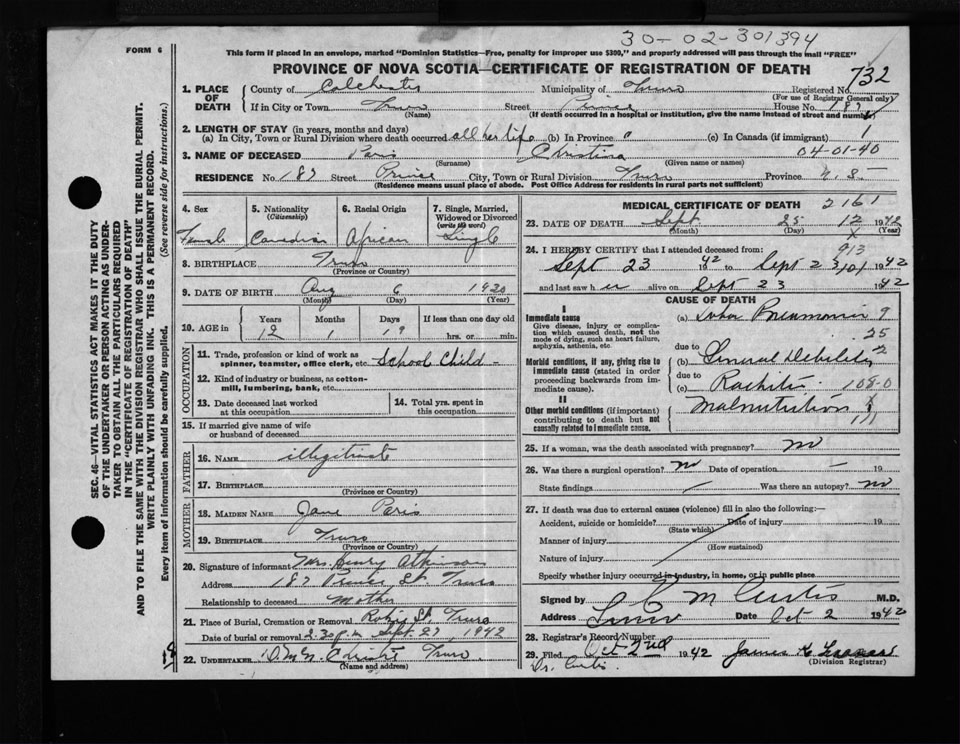 30-02-301394
FORM 6
This form if placed in an envelope, marked "Dominion Statistics—Free, penalty for improper use $300," and properly addressed will pass through the mail "FREE"
PROVINCE OF NOVA SCOTIA—CERTIFICATE OF REGISTRATION OF DEATH
732
1. PLACE OF DEATH
County of Colchester Municipality of Truro Registered No.
(For use of Registrar General only)
If in City or Town Truro Street Prince House No. 187
(Name) (If death occurred in a hospital or institution, give the name instead of street and number)
2. LENGTH OF STAY (in years, months and days)
(a) In City, Town or Rural Division where death occurred all her life (b) In Province (c) In Canada (if immigrant) 1
3. NAME OF DECEASED Paris Christina 04-01-40
(Surname) (Given name or names)
RESIDENCE No. 187 Street Prince City, Town or Rural Division Truro Province N.S.
(Residence means usual place of abode. Post Office Address for residents in rural parts not sufficient)
4. Sex 5. Nationality (Citizenship) 6. Racial Origin 7. Single, Married, Widowed or Divorced (write the word)
Female Canadian African Single
8. BIRTHPLACE Truro
(Province or Country)
9. DATE OF BIRTH Aug 6 1920
(Month) (Day) (Year)
10. AGE in Years Months Days If less than one day old
12 1 19 hrs. or min.
OCCUPATION
11. Trade, profession or kind of work as spinner, teamster, office clerk, etc. School Child -
12. Kind of industry or business, as cotton-mill, lumbering, bank, etc.
13. Date deceased last worked at this occupation
14. Total yrs. spent in this occupation
15. If married give name of wife or husband of deceased
FATHER
16. NAME illegitimate
17. BIRTHPLACE
(Province or Country)
MOTHER
18. MAIDEN NAME Jane Paris
19. BIRTHPLACE Truro
(Province or Country)
20. Signature of informant Mrs. Henry Atkinson
Address 187 Prince St Truro
Relationship to deceased Mother
21. Place of Burial, Cremation or Removal Robie St. Truro
Date of burial or removal 2.30 p.m. Sept. 27, 1942
22. UNDERTAKER Truro
(Name and address)
MEDICAL CERTIFICATE OF DEATH 2161
23. DATE OF DEATH Sept 25 12 1942
(Month) (Day) (Year)
24. I HEREBY CERTIFY that I attended deceased from: 913
Sept 23 1942 to Sept 23 101 1942
and last saw her alive on Sept 23 1942
CAUSE OF DEATH
I
Immediate cause
Give disease, injury or complication which caused death, not the mode of dying, such as heart failure, asphyxia, asthenia, etc.
(a) Lobar Pneumonia 9
due to 25
Morbid conditions, if any, giving rise to immediate cause (stated in order proceeding backwards from immediate cause).
(b) General Debility 2
due to
(c) Rachitis 108-0
II
Other morbid conditions (if important) contributing to death but not causally related to immediate cause.
Malnutrition
111
25. If a woman, was the death associated with pregnancy? no
26. Was there a surgical operation? no Date of operation — 19
State findings Was there an autopsy? no
27. If death was due to external causes (violence) fill in also the following:—
Accident, suicide or homicide? Date of injury 19
(State which)
Manner of injury
(How sustained)
Nature of injury
Specify whether injury occurred in industry, in home, or in public place
Signed by C M Curtis M.D.
Address Truro Date Oct 2 1942
28. Registrar's Record Number
29. Filed Oct 2nd 1942 James
(Division Registrar)
Dr. Curtis.
SEC. 46—VITAL STATISTICS ACT MAKES IT THE DUTY OF THE UNDERTAKER OR PERSON ACTING AS UNDERTAKER TO OBTAIN ALL THE PARTICULARS REQUIRED IN THE "CERTIFICATE OF REGISTRATION OF DEATH" AND TO FILE THE SAME WITH THE DIVISION REGISTRAR WHO SHALL ISSUE THE BURIAL PERMIT.
WRITE PLAINLY WITH UNFADING INK. THIS IS A PERMANENT RECORD.
Every item of information should be carefully supplied. (See reverse side for instructions.)